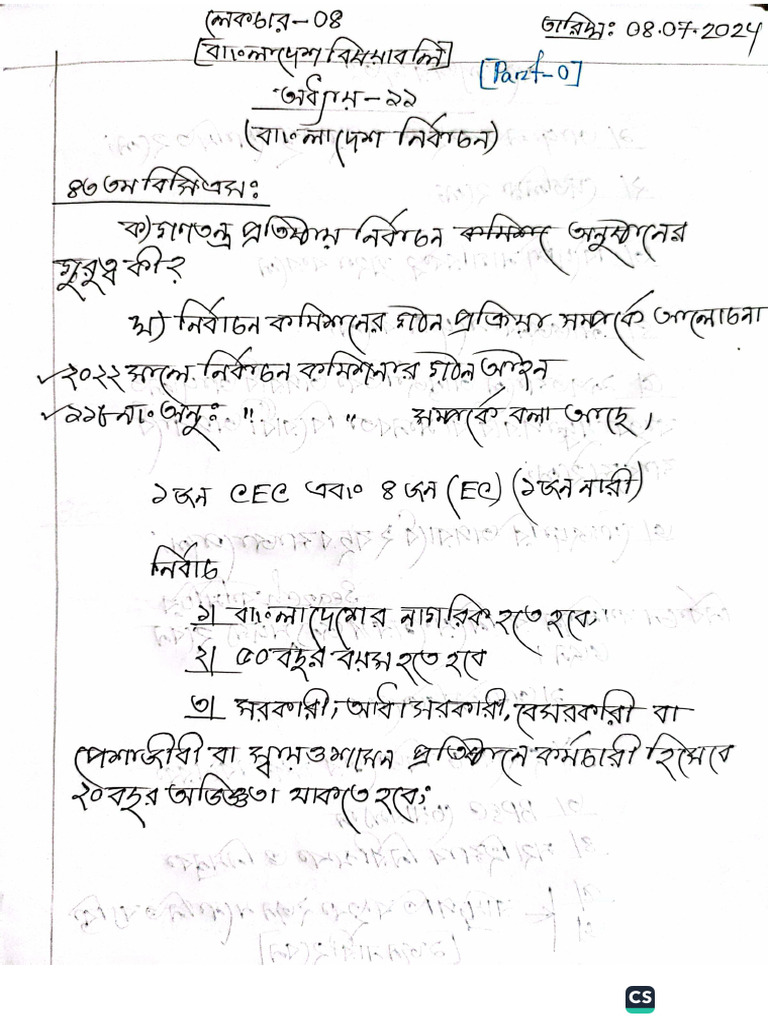 লেকচার-০৪
তারিখ: ০৪.০৭.২০২৪
[বাংলাদেশ বিষয়াবলি]
[Part-0]
অধ্যায়-১১
(বাংলাদেশ নির্বাচন)
৪৩ তম বিসিএস:
ক) গণতন্ত্র প্রতিষ্ঠায় নির্বাচন কমিশন অনুষ্ঠানের
গুরুত্ব কী?
খ) নির্বাচন কমিশনের গঠন প্রক্রিয়া সম্পর্কে আলোচনা
২০২২ সালে নির্বাচন কমিশনার গঠন আইন
১১৮ নং অনু: " " সম্পর্কে বলা আছে।
১জন CEC এবং ৪ জন (EC) (১জন নারী)
নির্বাচ
১| বাংলাদেশের নাগরিক হতে হবে;
২| ৫০ বছর বয়স হতে হবে
৩| সরকারী, আধাসরকারী, বেসরকারী বা
পেশাজীবী বা স্বায়ত্তশাসন প্রতিষ্ঠানে কর্মচারী হিসেবে
২০ বছর অভিজ্ঞতা থাকতে হবে;
CS